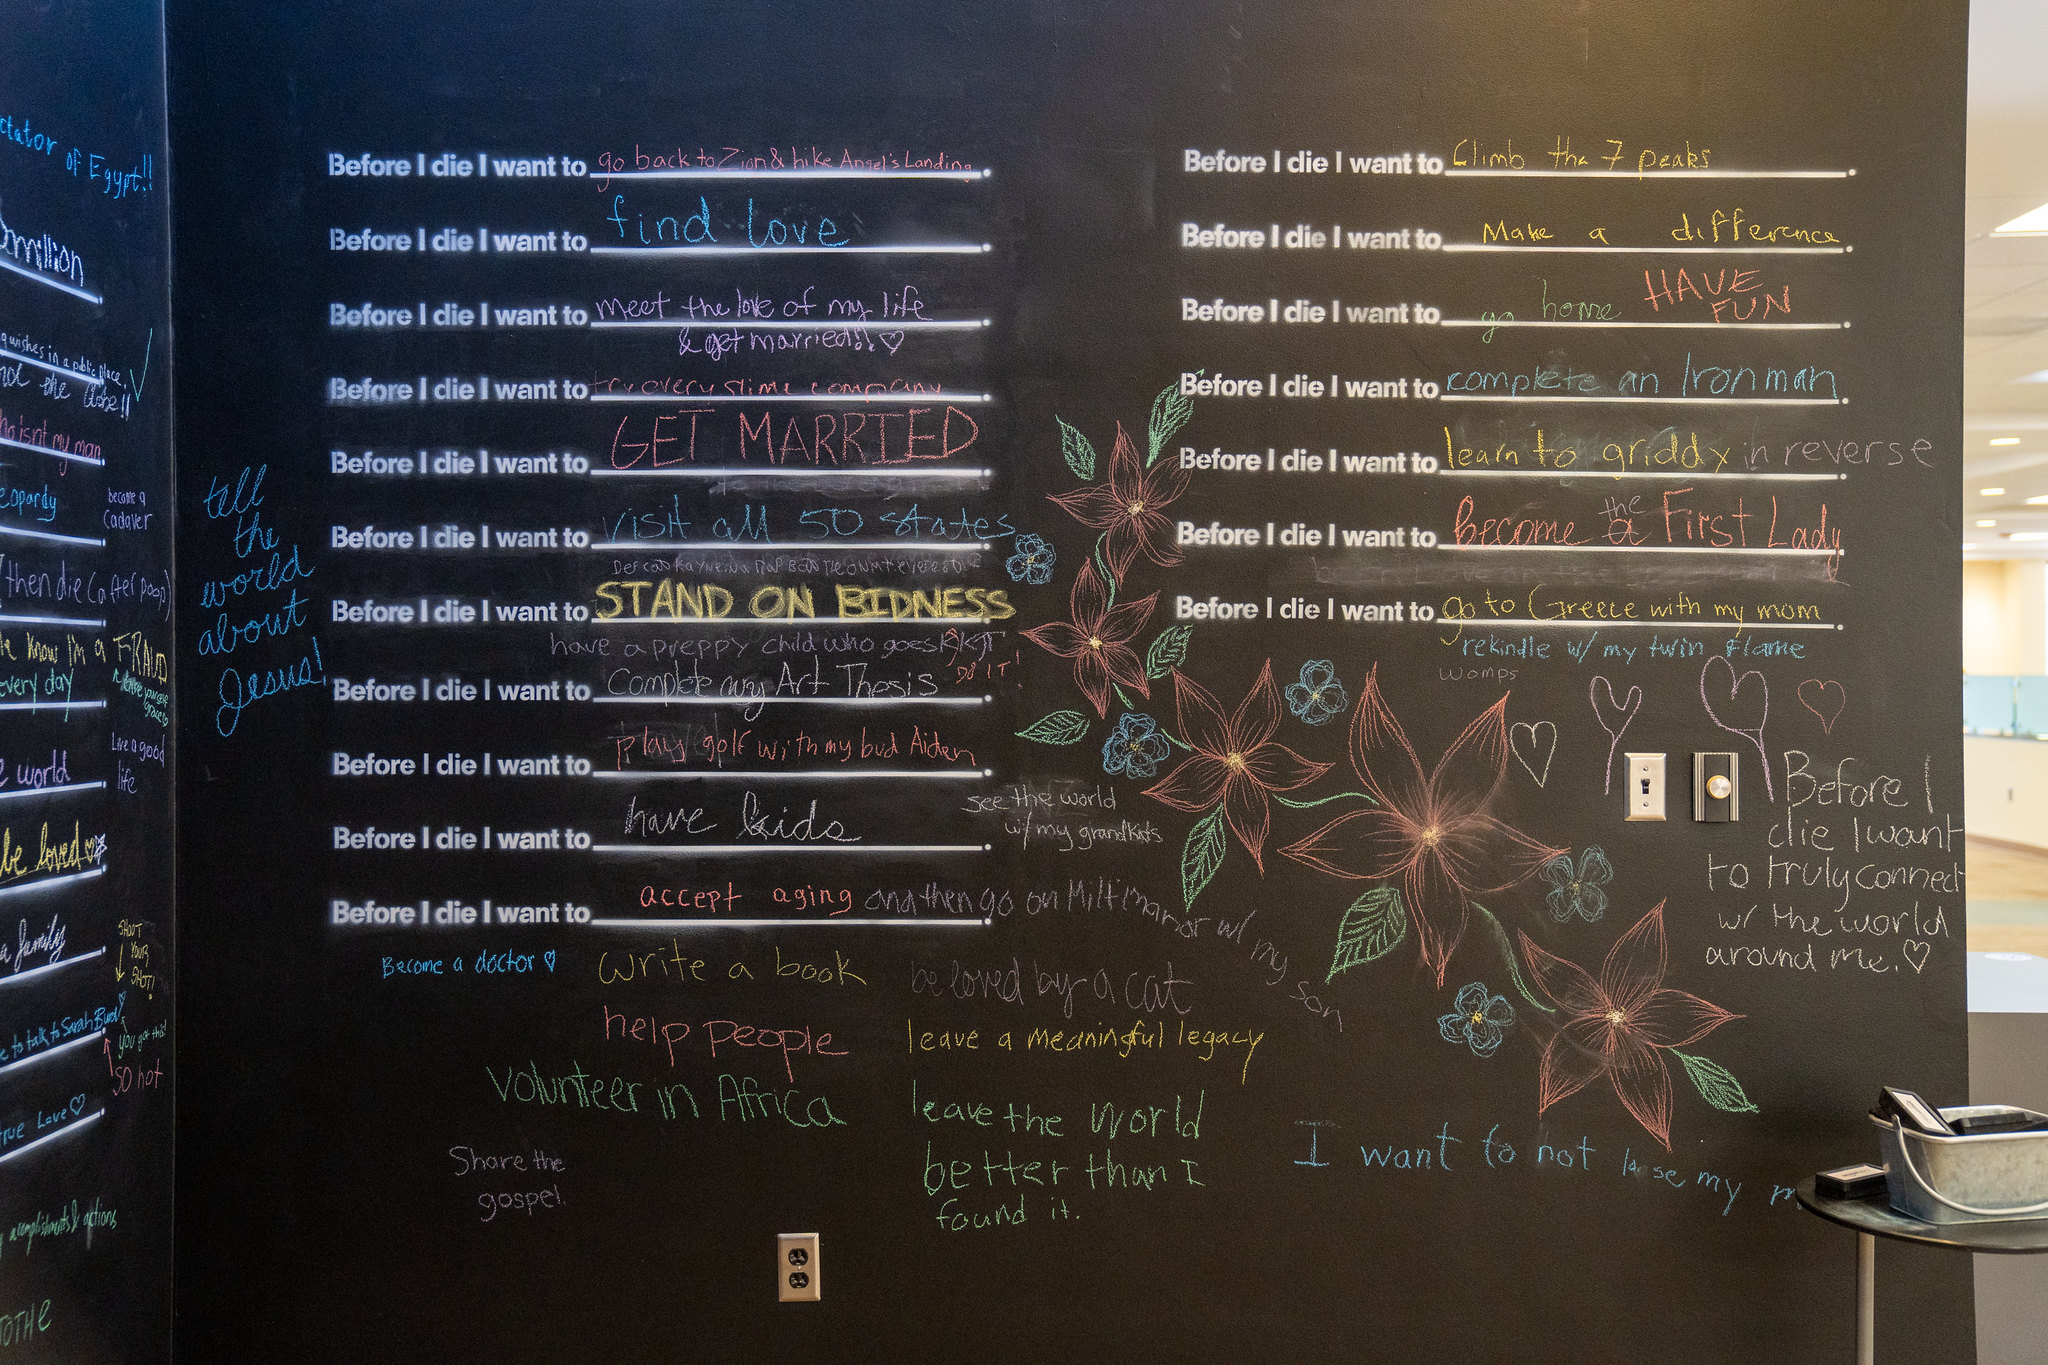 ctator of Egypt!!
million
wishes in a public place.
ho isnt my man
eopardy
become a
cadaver
then die (after poop)
know I'm a FRAUD
every day
Live a good
life
world
be loved
a family
SHOOT
YOUR
SHOT!
e to talk to Sarah Burd
you got this!
SO hot
True Love
acomplishments & actions
TOTHE
tell
the
world
about
Jesus!
Before I die I want to go back to Zion & hike Angel's Landing.
Before I die I want to find love.
Before I die I want to meet the love of my life.
& get married!! ♡
Before I die I want to try every slime company.
Before I die I want to GET MARRIED.
Before I die I want to visit all 50 states.
Before I die I want to STAND ON BIDNESS.
have a preppy child who goes
DO IT!
Before I die I want to Complete my Art Thesis.
Before I die I want to play golf with my bud Aiden.
see the world
w/ my grandkids
Before I die I want to have kids.
Before I die I want to accept aging and then go on Milf Manor w/ my son.
Become a doctor ♡
write a book
be loved by a cat
help people
leave a meaningful legacy
Volunteer in Africa
leave the world
better than I
found it.
Share the
gospel.
Before I die I want to Climb the 7 peaks.
Before I die I want to Make a difference.
Before I die I want to go home HAVE FUN.
Before I die I want to complete an Ironman.
Before I die I want to learn to griddy in reverse.
Before I die I want to Become a the First Lady.
Before I die I want to go to Greece with my mom.
rekindle w/ my twin flame
womps
Before I
die I want
to truly connect
w/ the world
around me. ♡
I want to not lose my